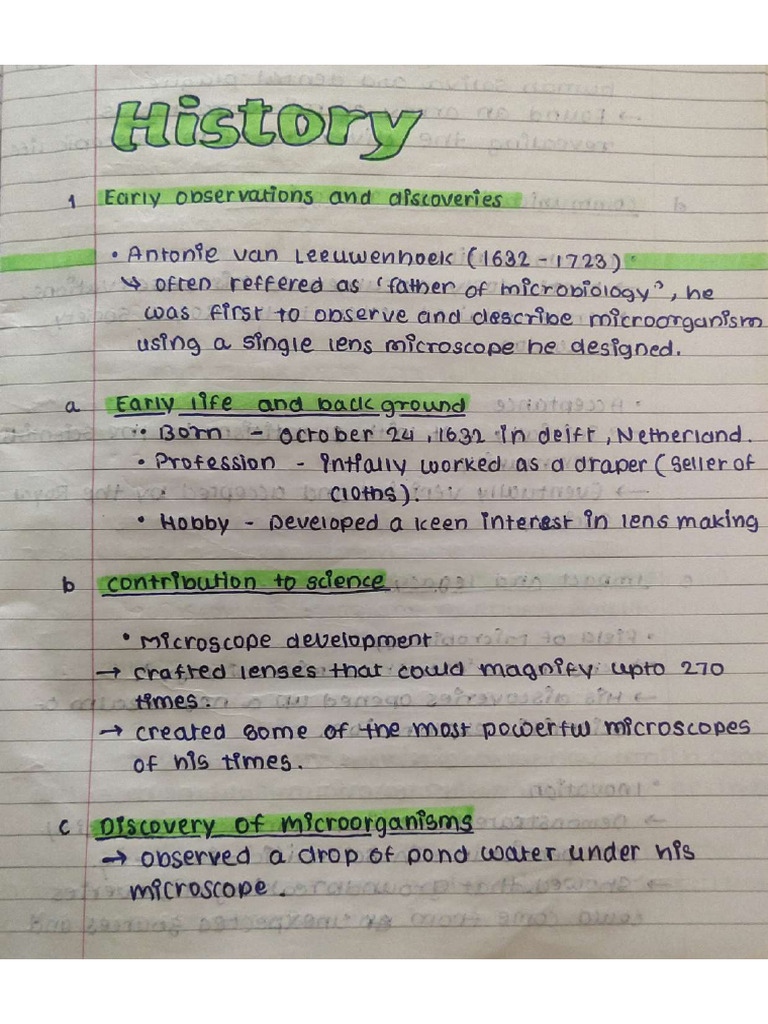 History
1 Early observations and discoveries
• Antonie van Leeuwenhoek (1632 - 1723)
↳ often reffered as 'father of microbiology', he
was first to observe and describe microorganism
using a single lens microscope he designed.
a Early life and background
• Born - october 24, 1632 in delft, Netherland.
• Profession - intially worked as a draper (seller of
cloths).
• Hobby - Developed a keen interest in lens making
b contribution to science
• Microscope development
→ crafted lenses that could magnify upto 270
times.
→ created some of the most powerful microscopes
of his times.
c Discovery of microorganisms
→ observed a drop of pond water under his
microscope.